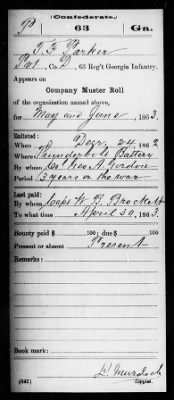 (Confederate.)
P 63 Ga.
T. F. Parker
Pvt, Co. D, 63 Reg't Georgia Infantry.
Appears on
Company Muster Roll
of the organization named above,
for May and June, 1863.
Enlisted:
When Decr. 24, 1862
Where Thunderbolt Battery
By whom Col Geo A Gordon
Period 3 years or the war
Last paid:
By whom Capt W. B. Brockett
To what time April 30, 1863.
Bounty paid $ 100; due $ 100
Present or absent Present
Remarks:
Book mark:
(642) L. Murdoch
Copyist.